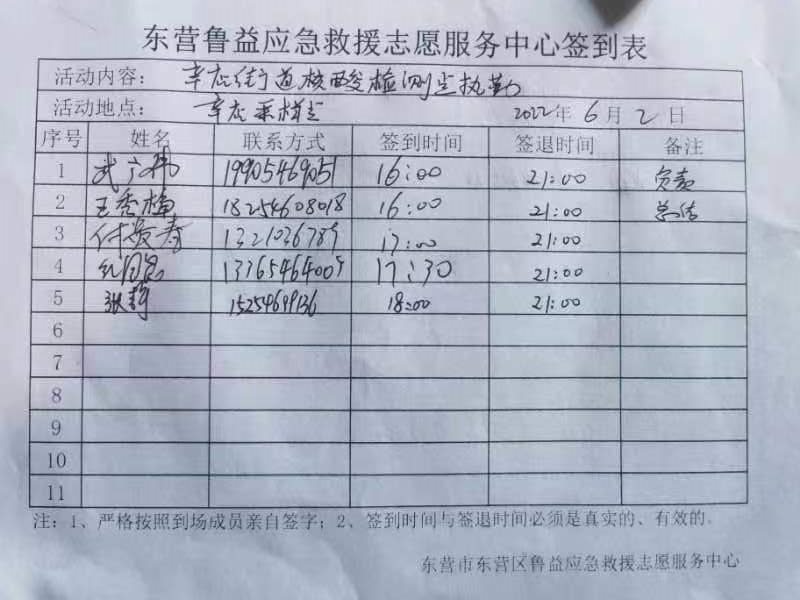 东营鲁益应急救援志愿服务中心签到表
活动内容: 辛店街道核酸检测点执勤
活动地点: 辛店采样点 2022年 6月 2日
序号 姓名 联系方式 签到时间 签退时间 备注
1 武广伟 19905469051 16:00 21:00 负责
2 王秀梅 18254608018 16:00 21:00 总结
3 付爱春 1321036789 17:00 21:00
4 13365464009 17:30 21:00
5 张静 15254699136 18:00 21:00
6
7
8
9
10
11
注: 1、严格按照到场成员亲自签字; 2、签到时间与签退时间必须是真实的、有效的。
东营市东营区鲁益应急救援志愿服务中心